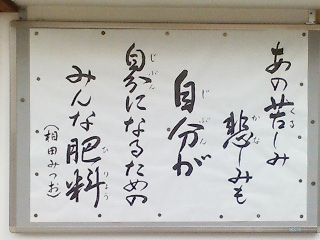 あの苦しみ
悲しみも
自分が
自分になるための
みんな肥料
(相田みつお)